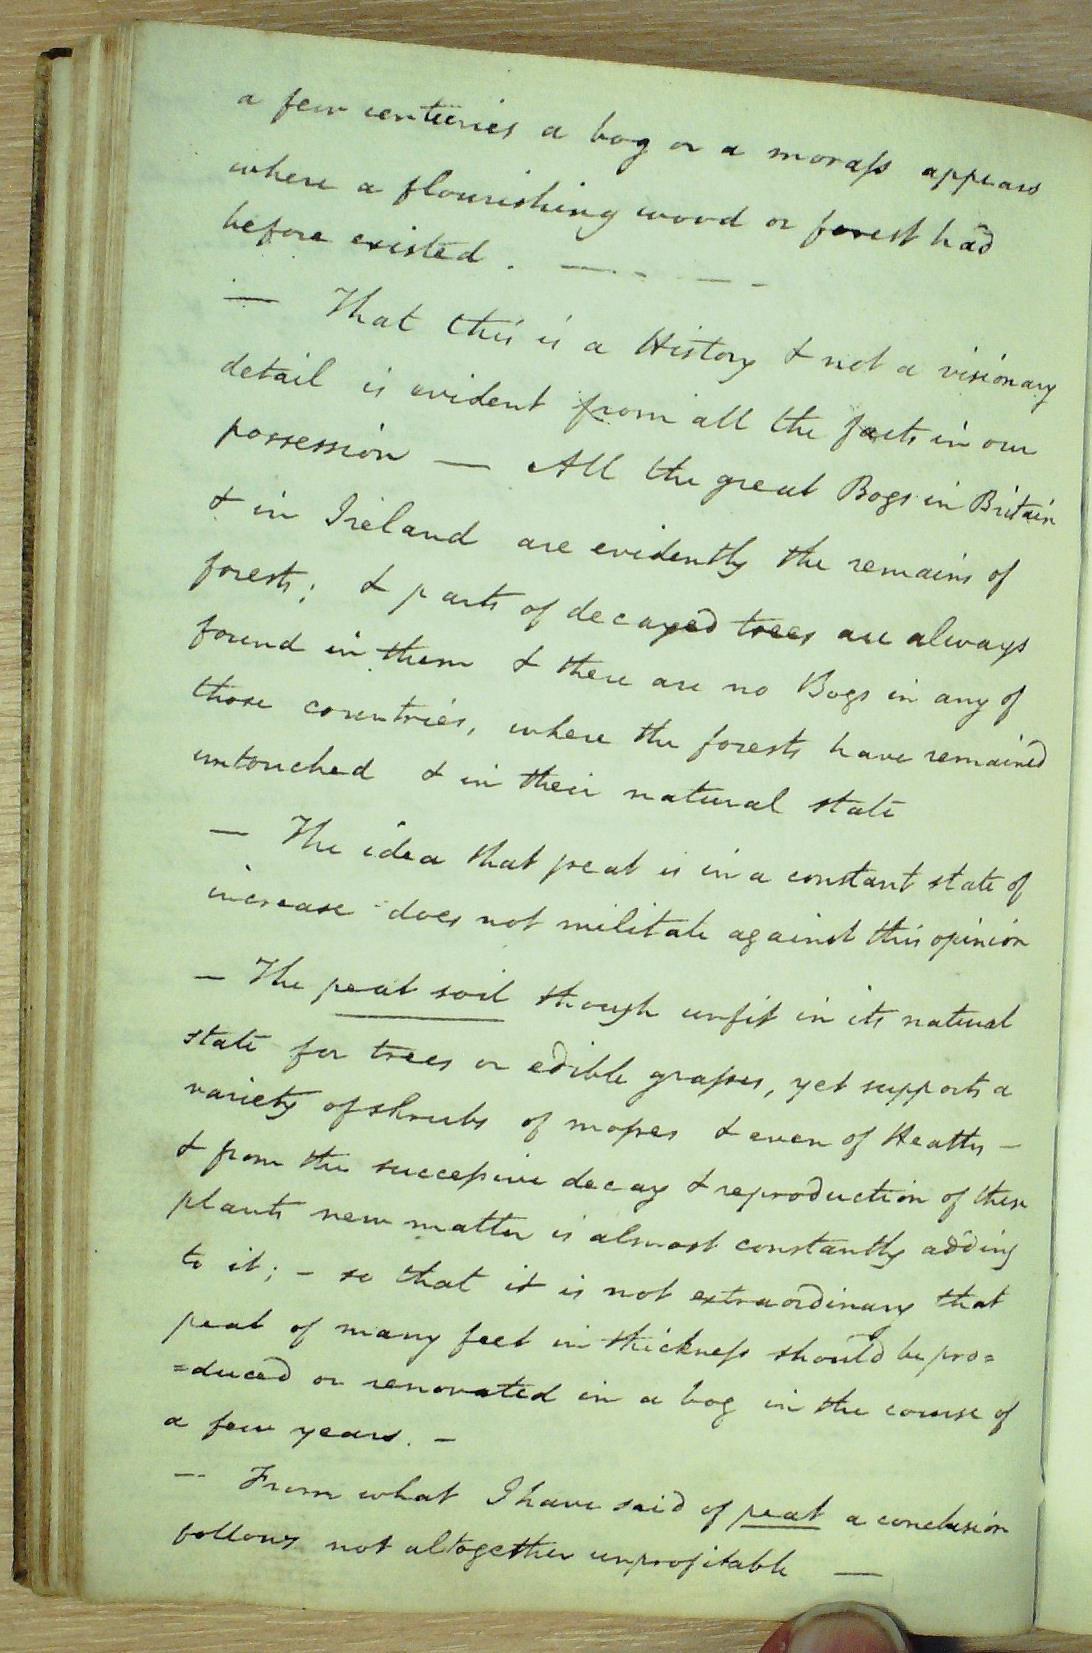 a few centuries a bog or a morass appears
where a flourishing wood or forest had
before existed. — - - — -
— That this is a History & not a visionary
detail is evident from all the facts in our
possession — All the great Bogs in Britain
& in Ireland are evidently the remains of
forests; & parts of decayed trees are always
found in them & there are no Bogs in any of
those countries, where the forests have remained
untouched & in their natural state
— The idea that peat is in a constant state of
increase does not militate against this opinion
— The peat soil though unfit in its natural
state for trees or edible grasses, yet supports a
variety of shrubs of mosses & even of Heaths —
& from the successive decay & reproduction of these
plants new matter is almost constantly adding
to it; – so that it is not extraordinary that
peat of many feet in thickness should be pro=
=duced or renovated in a bog in the course of
a few years. –
— From what I have said of peat a conclusion
follows not altogether unprofitable —